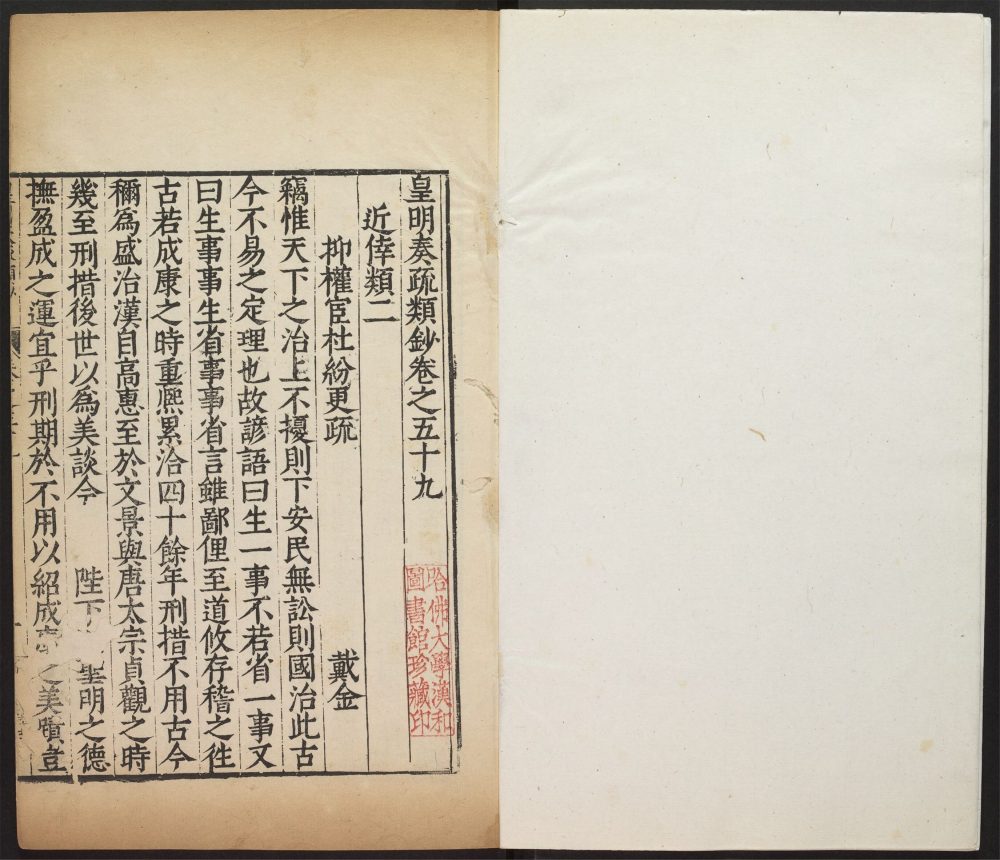 皇明奏疏類鈔卷之五十九
近倖類二
抑權宦杜紛更疏
戴金
竊惟天下之治上不擾則下安民無訟則國治此古
今不易之定理也故諺語曰生一事不若省一事又
曰生事事生省事事省言雖鄙俚至道攸存稽之徃
古若成康之時重熈累洽四十餘年刑措不用古今
稱爲盛治漢自高惠至於文景與唐太宗貞觀之時
幾至刑措後世以爲美談今 陛下 聖明之德
撫盈成之運宜乎刑期於不用以紹成 之美 豈
哈佛大學漢和
圖書館珍藏印